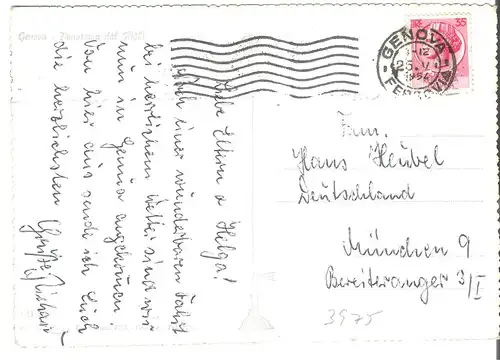 Genova - Panorama dal Righi
Liebe Eltern u Helga!
Nach einer wunderbaren Fahrt
bei herrlichem Wetter sind wir
nun in Genua angekommen
Von hier aus sende ich Euch
die herzlichsten
Grüße
Richard
35
GENOVA
FERROVIA
Fam.
Hans Heubel
Deutschland
München 9
Bereiteranger 3/I
3975